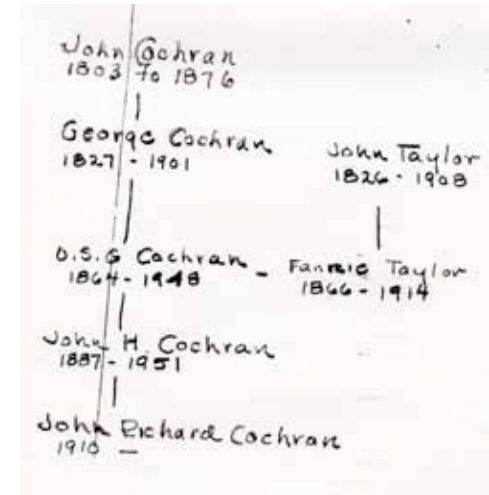 John Cochran
1803 to 1876
George Cochran
1827 - 1901
John Taylor
1826 - 1908
O.S.G Cochran - Fannie Taylor
1864 - 1948
1866 - 1914
John H. Cochran
1887 - 1951
John Richard Cochran
1910 -